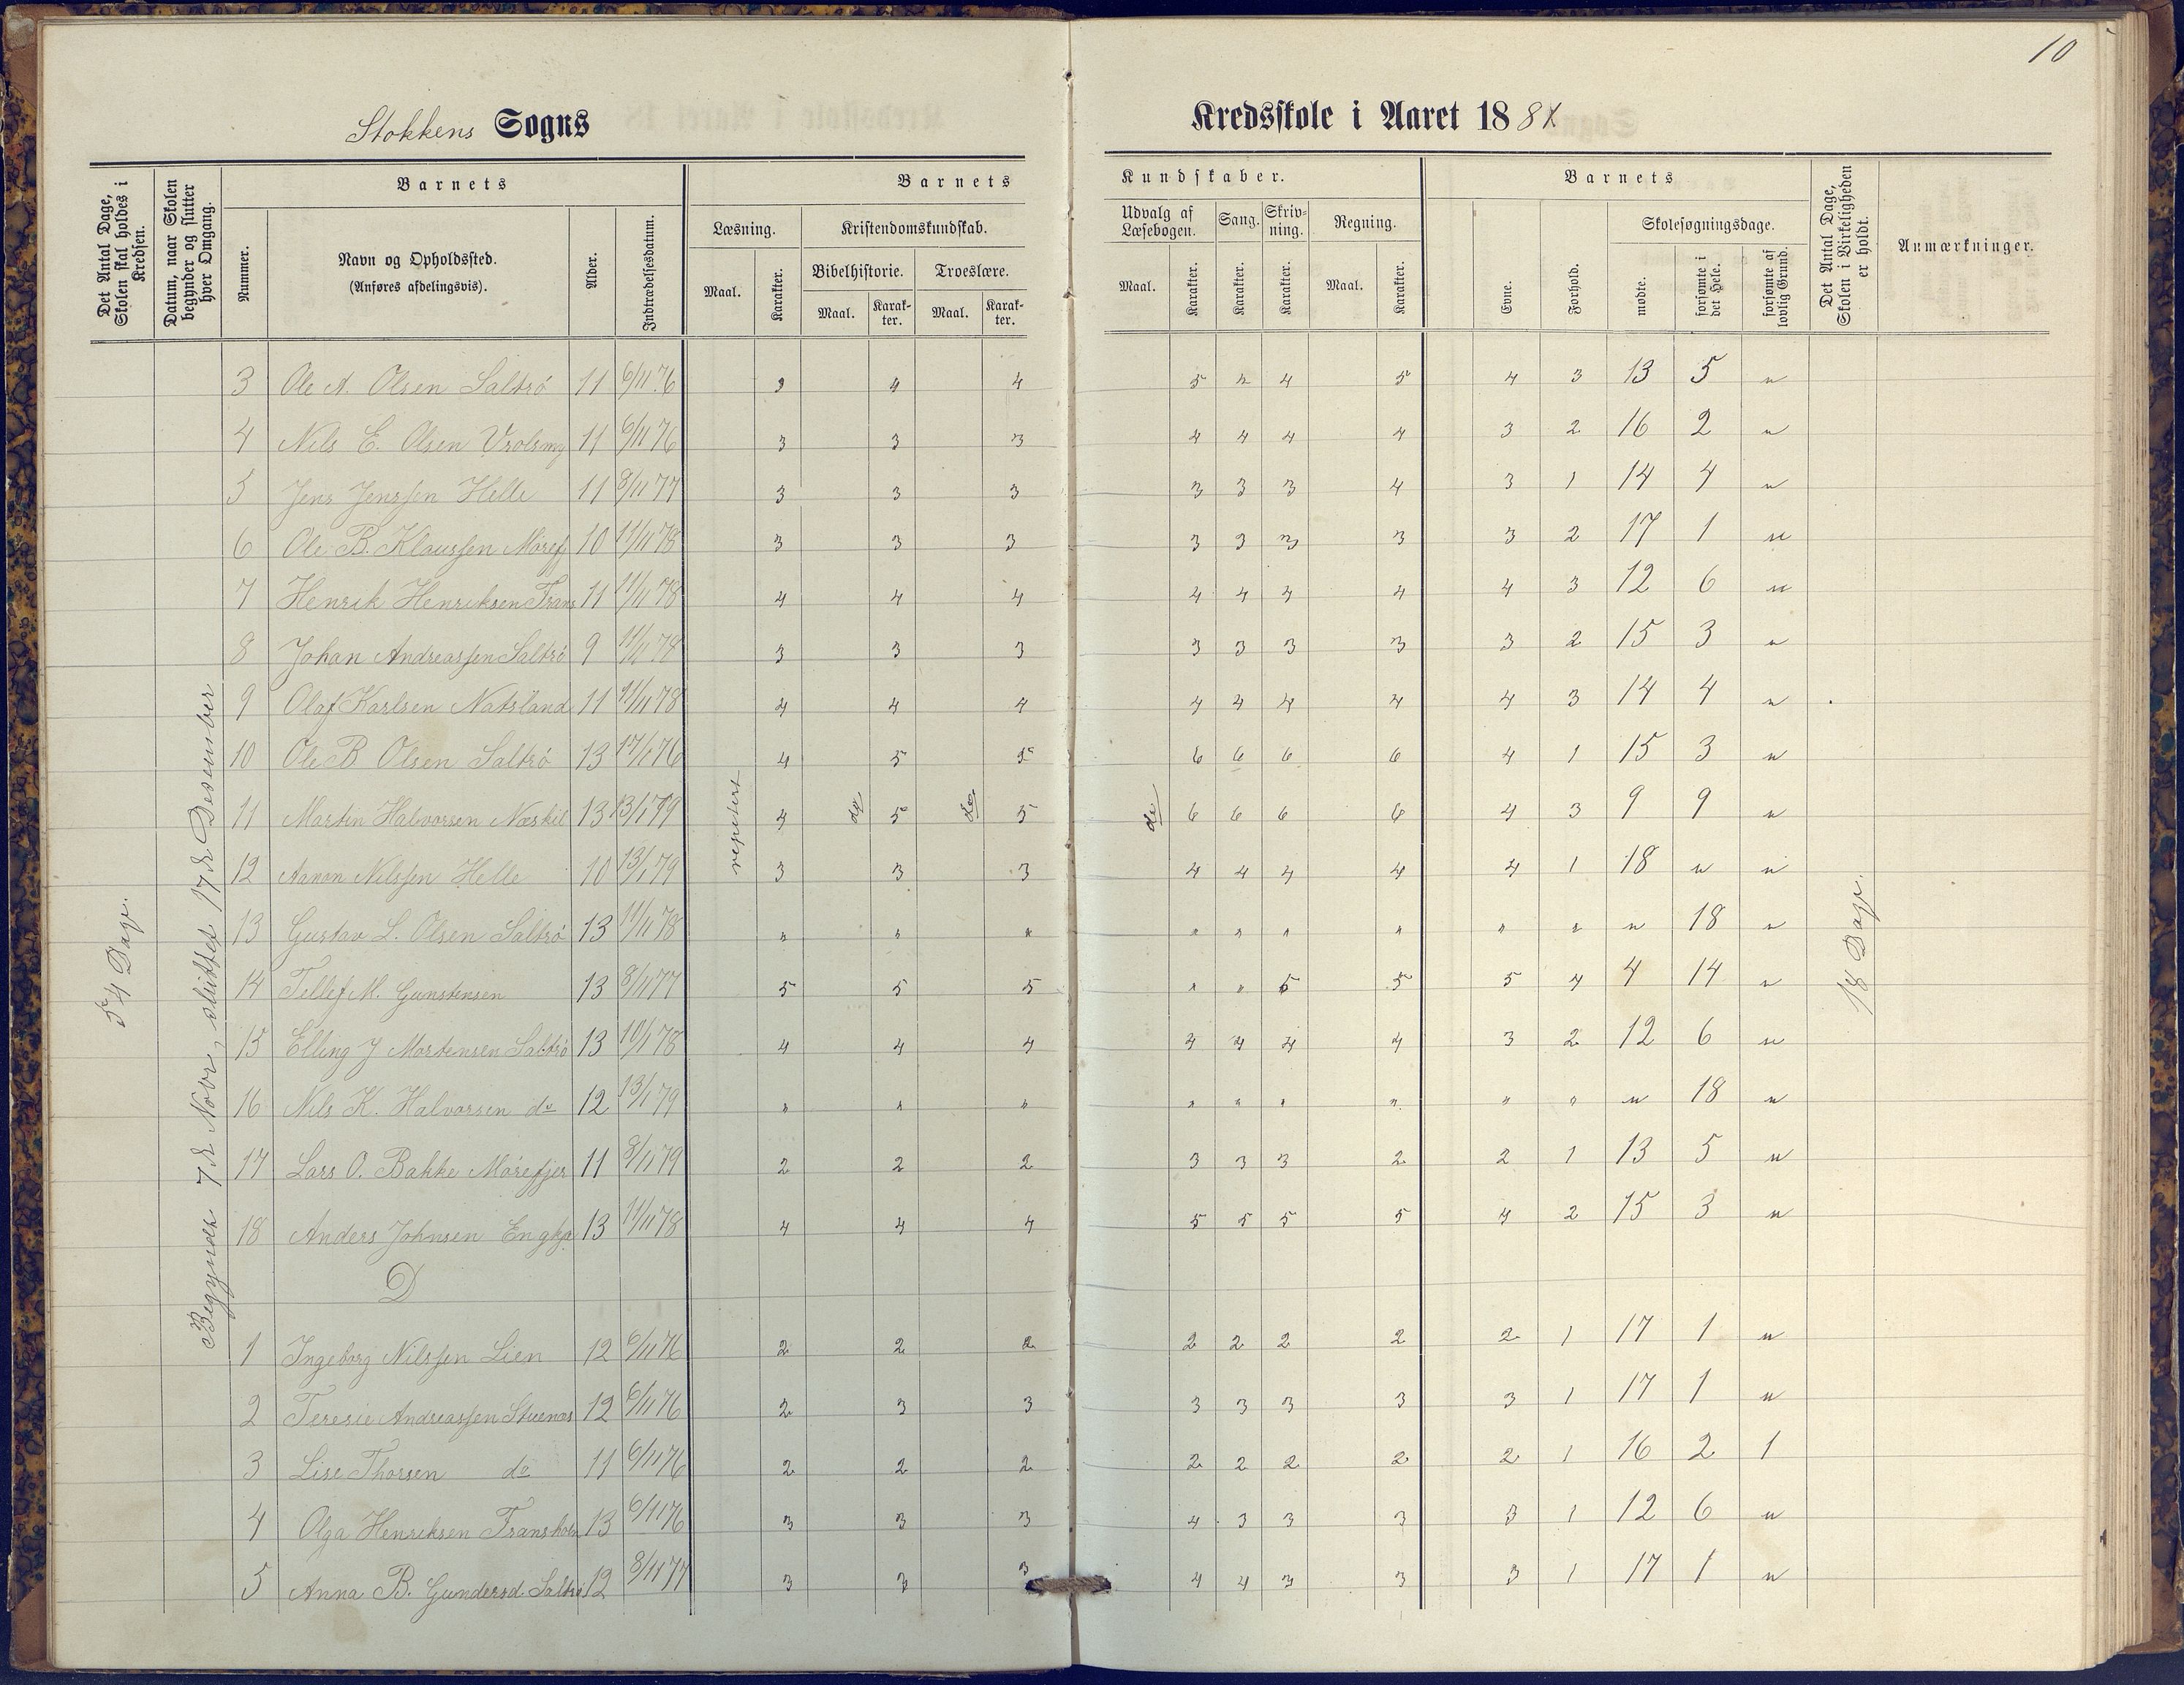 10
Stokkens Sogns
Kredsskole i Aaret 188
Det Antal Dage, Skolen skal holdes i Kredsen.
Datum, naar Skolen begynder og slutter hver Omgang.
Barnets
Nummer.
Navn og Opholdssted. (Anføres afdelingsvis).
Alder.
Indtrædelsesdatum.
Barnets
Læsning.
Maal.
Karakter.
Kristendomskundskab.
Bibelhistorie.
Maal.
Karakter.
Troeslære.
Maal.
Karakter.
Kundskaber.
Udvalg af Læsebogen.
Maal.
Karakter.
Sang.
Karakter.
Skrivning.
Karakter.
Regning.
Maal.
Karakter.
Barnets
Evne.
Forhold.
Skolesøgningsdage.
mødte.
forsømte i det Hele.
forsømte af lovlig Grund.
Det Antal Dage, Skolen i Virkeligheden er holdt.
Anmærkninger.
54 Dage.
Begyndt 7de Novr, sluttet 17de Desember
repetert
do
do
do
18 Dage.
3 Ole A. Olsen Saltrö 11 6/11 76 4 4 5 4 5 4 3 13 5 "
4 Nils E. Olsen 11 6/11 76 3 3 3 4 4 4 4 3 2 16 2 "
5 Jens Jenssen Helle 11 8/11 77 3 3 3 3 3 3 4 3 1 14 4 "
6 Ole B. Klaussen Möref 10 11/11 78 3 3 3 3 3 3 3 3 2 17 1 "
7 Henrik Henriksen Frans 11 11/11 78 4 4 4 4 4 4 4 4 3 12 6 "
8 Johan Andreassen Saltrö 9 11/11 78 3 3 3 3 3 3 3 3 2 15 3 "
9 Olaf Karlsen Natsland 11 11/11 78 4 4 4 4 4 4 4 4 3 14 4 "
10 Ole B Olsen Saltrö 13 17/1 76 4 5 5 6 6 6 6 4 1 15 3 "
11 Martin Halvorsen Næskil 13 13/1 79 4 5 5 6 6 6 6 4 3 9 9 "
12 Aanon Nilssen Helle 10 13/1 79 3 3 3 4 4 4 4 4 1 18 " "
13 Gustav L. Olsen Saltrö 13 11/11 78 " " " " " " " " " " 18 "
14 Tellef M. Gunstensen 13 8/11 77 5 5 5 " " 5 5 5 4 4 14 "
15 Elling J Mortensen Saltrö 13 10/1 78 4 4 4 4 4 4 4 3 2 12 6 "
16 Nils K. Halvorsen do 12 13/1 79 " " " " " " " " " " 18 "
17 Lars O. Bakke Mörefjer 11 8/11 79 2 2 2 3 3 3 2 2 1 13 5 "
18 Anders Johnsen Engkjr 13 11/11 78 4 4 4 5 5 5 5 4 2 15 3 "
D
1 Ingeborg Nilssen Lien 12 6/11 76 2 2 2 2 2 2 2 2 1 17 1 "
2 Teresie Andreassen Stuenæs 12 6/11 76 2 3 3 3 3 3 3 3 1 17 1 "
3 Lise Thorsen do 11 6/11 76 2 2 2 2 2 2 2 2 1 16 2 1
4 Olga Henriksen Fransholm 13 6/11 76 3 3 3 4 3 3 3 3 1 12 6 "
5 Anna B. Gundersd. Saltrö 12 8/11 77 3 3 3 4 4 3 3 3 1 17 1 "